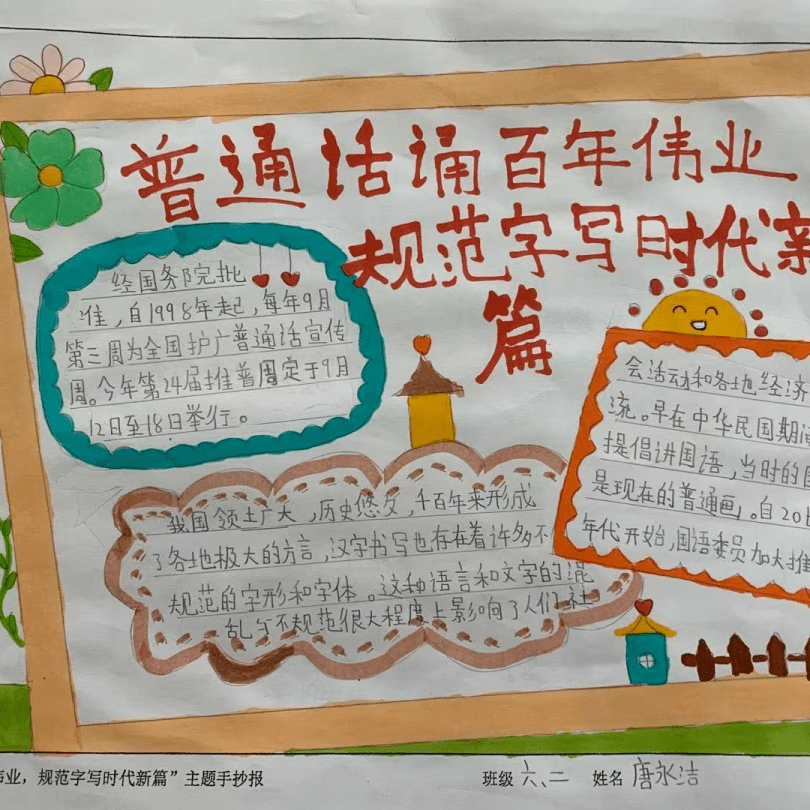 普通话诵百年伟业
规范字写时代新
篇
经国务院批
准,自1998年起,每年9月
第三周为全国护广普通话宣传
周。今年第24届推普周定于9月
12日至18日举行。
会活动和各地经济
流。早在中华民国期间
提倡讲国语,当时的国
是现在的普通画」。自20世
年代开始,国语委员加大推
我国领土广大,历史悠久,千百年来形成
了各地极大的方言,汉字书写也存在着许多不
规范的字形和字体。这种语言和文字的混
乱与不规范很大程度上影响了人们社
伟业,规范字写时代新篇”主题手抄报
班级 六、二 姓名 唐永洁